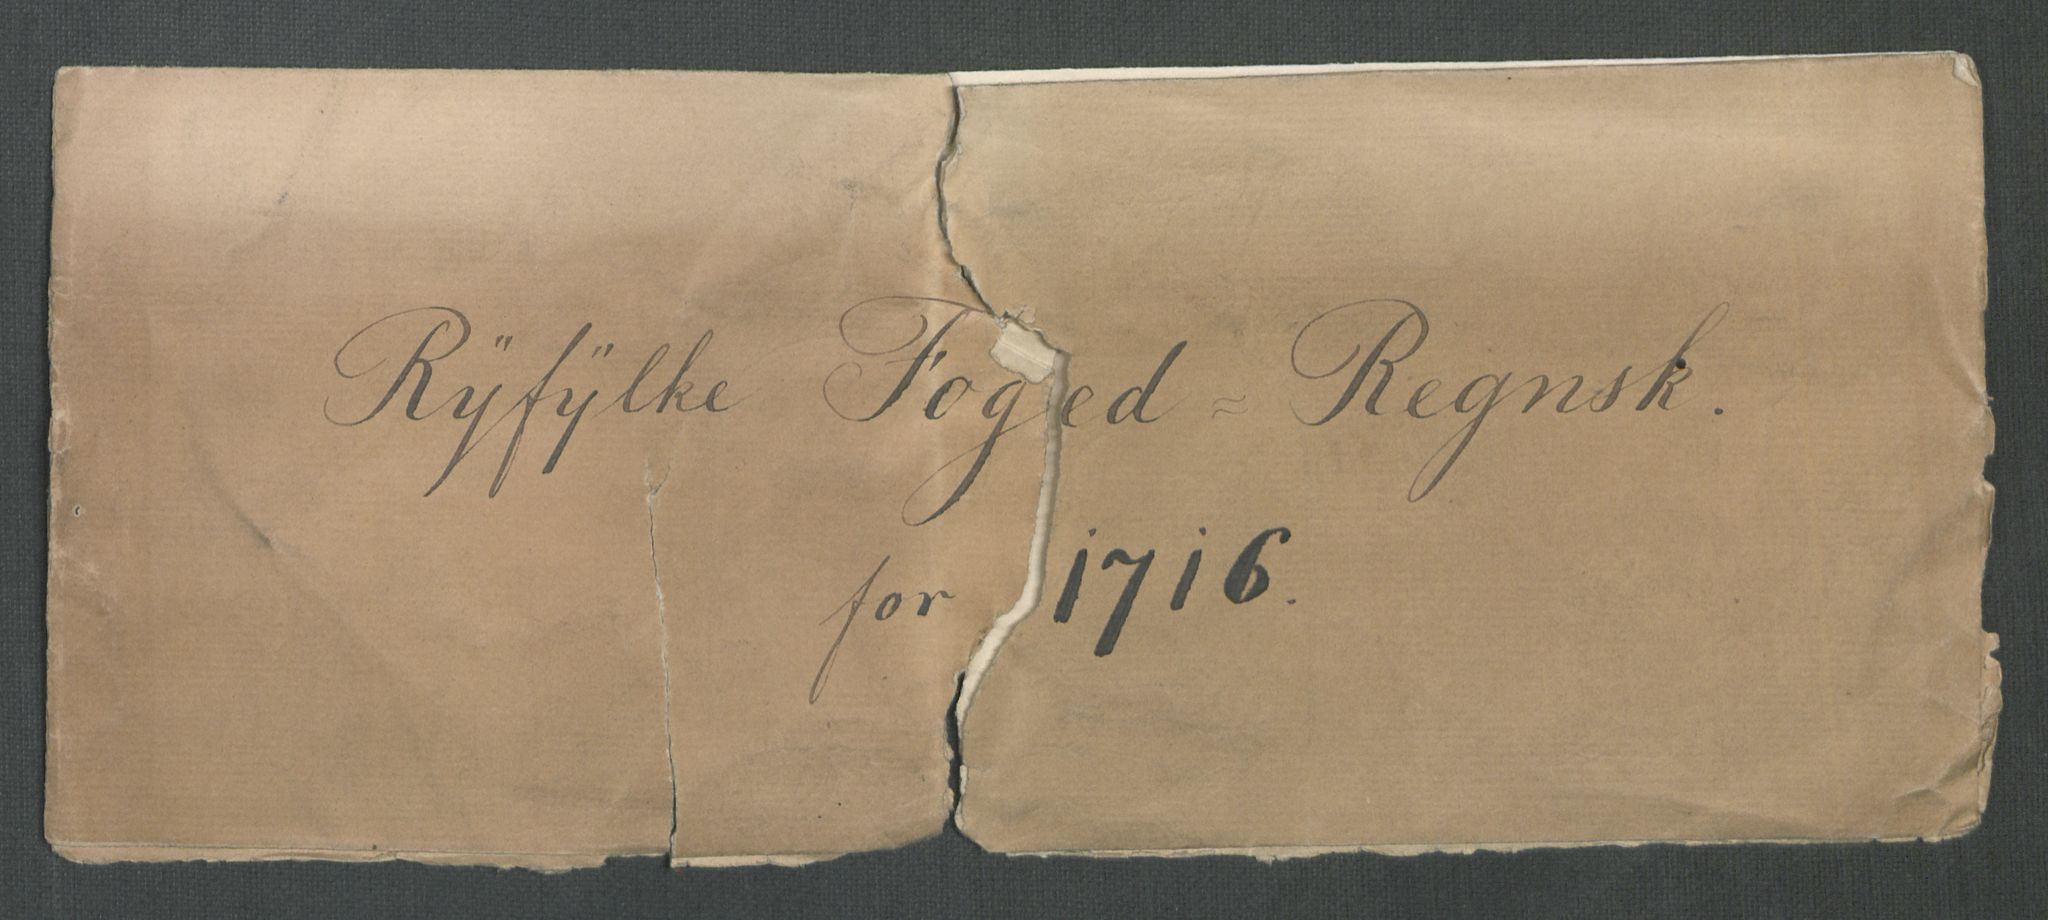 Ryfylke Foged-Regnsk.
for 1716.